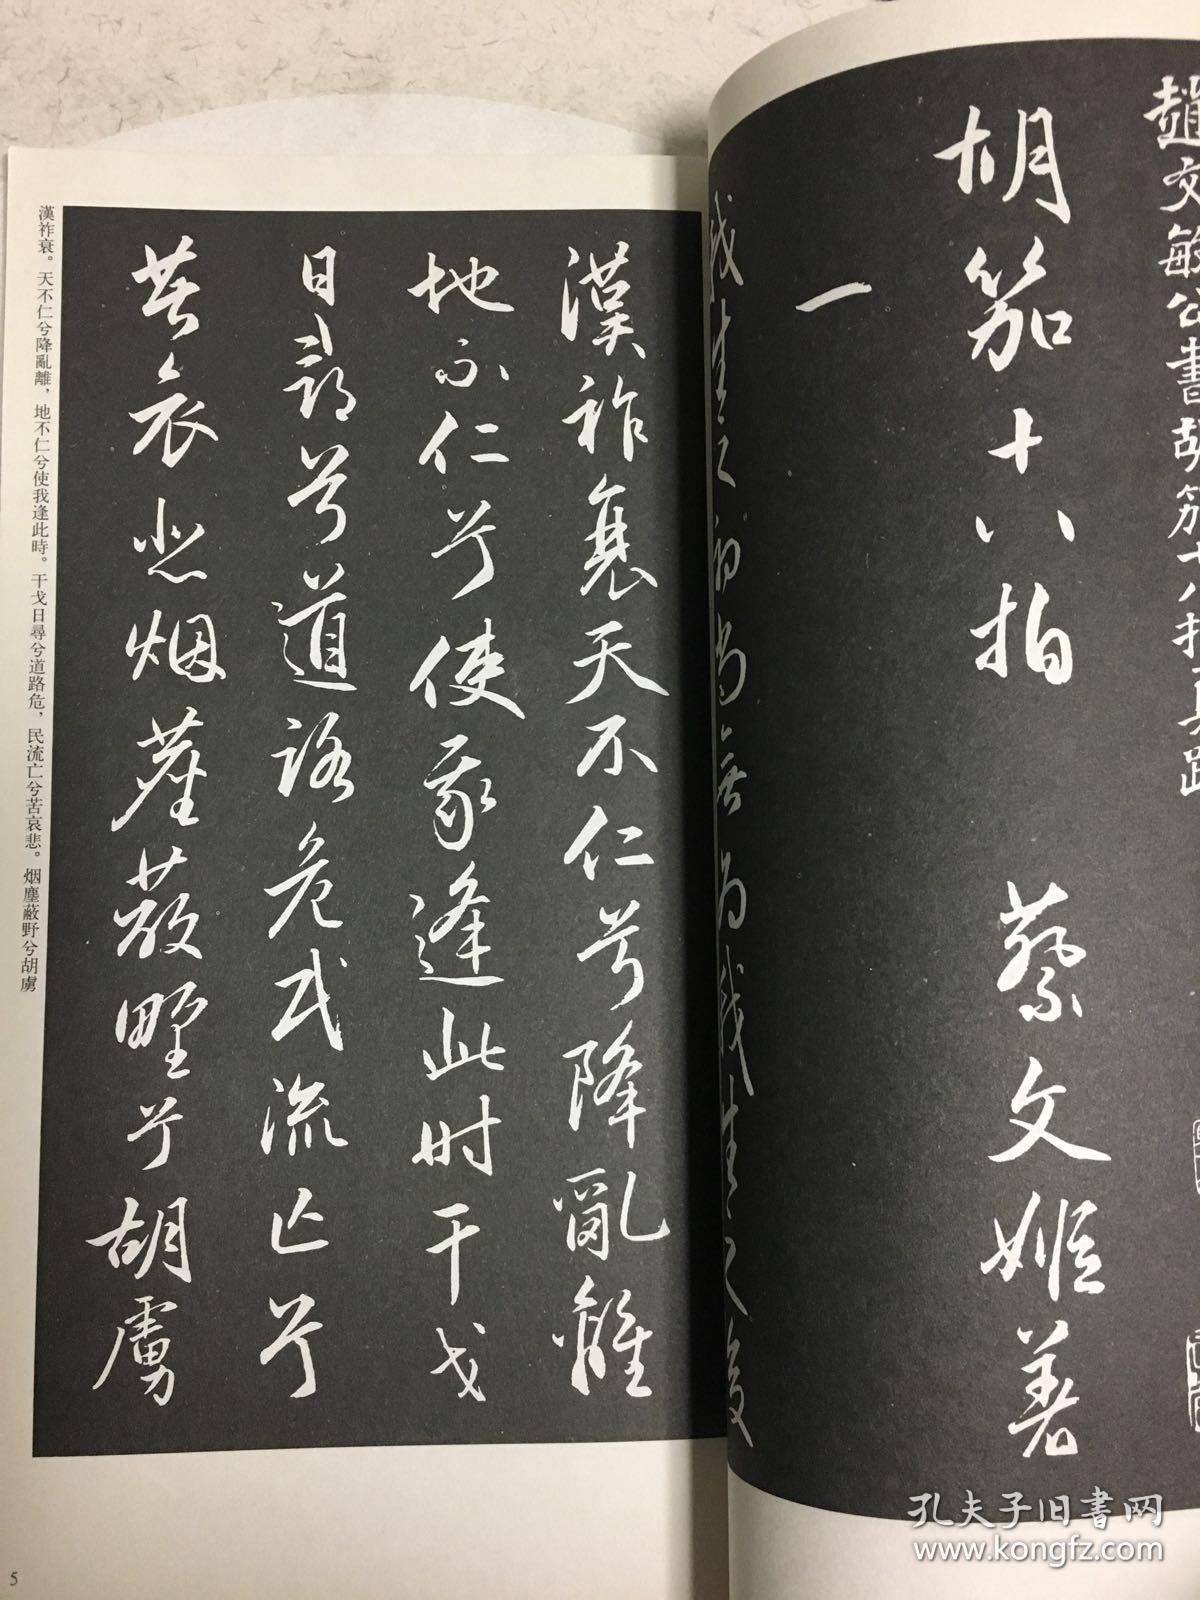 趙文敏公書胡笳十八拍真跡
胡笳十八拍 蔡文姬著
一
我生之初尚無為我生之後
漢祚衰天不仁兮降亂離
地不仁兮使我逢此時干戈
日尋兮道路危民流亡兮
苦哀悲烟塵蔽野兮胡虜
漢祚衰。天不仁兮降亂離，地不仁兮使我逢此時。干戈日尋兮道路危，民流亡兮苦哀悲。烟塵蔽野兮胡虜
5
孔夫子旧书网
www.kongfz.com